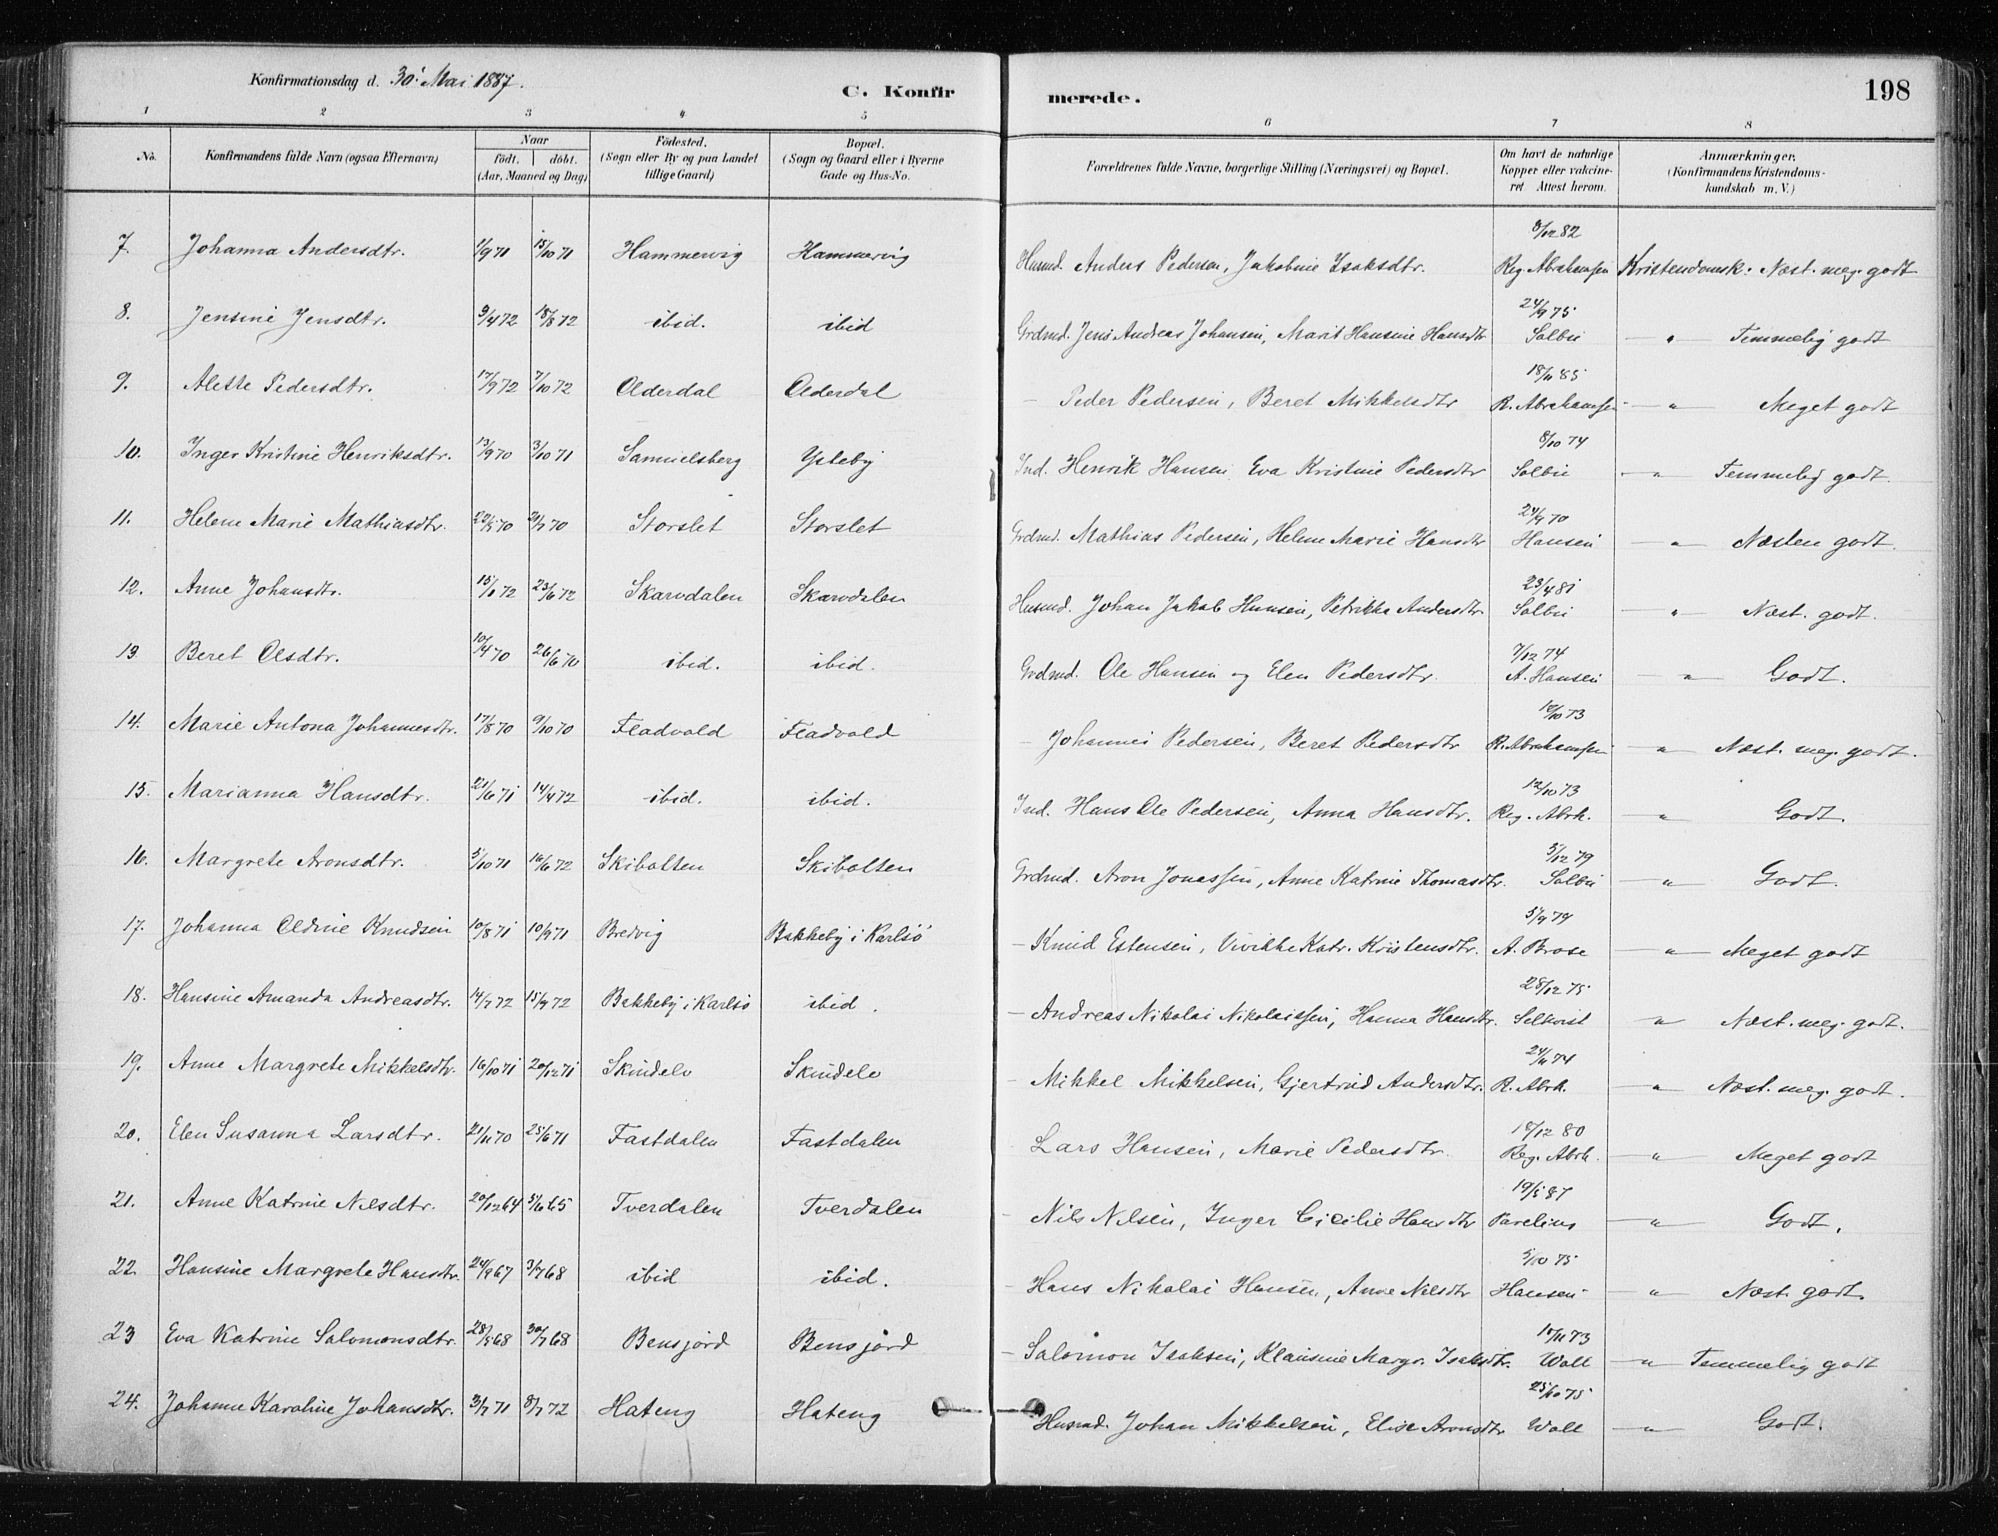 Konfirmationsdag d. 30' Mai 1887.
C. Konfir merede. 198
1 2 3 4 5 6 7 8
No. Konfirmandens fulde Navn (ogsaa Efternavn) Naar födt. döbt. (Aar, Maaned og Dag) Födested. (Sogn eller By og paa Landet tillige Gaard) Bopæl. (Sogn og Gaard eller i Byerne Gade og Hus-No. Forældrenes fulde Navne, borgerlige Stilling (Næringsvei) og Bopæl. Om havt de naturlige Kopper eller vakcineret Attest herom. Anmærkninger. (Konfirmandens Kristendomskundskab m. V.)
7. Johanna Andersdtr. 1/9 71 15/10 71 Hammervig Hammervig Husmd. Anders Pedersen, Jakobine Isaksdtr. 8/12 82 Reg. Abrahamsen Kristendomsk. Næst. meg. godt
8. Jensine Jensdtr. 9/4 72 18/8 72 ibid. ibid Grdmd. Jens Andreas Johansen, Marit Hansine Hansdtr 24/9 75 Solbu — " — Temmelig godt
9. Alette Pedersdtr. 17/9 72 7/10 72 Olderdal Olderdal — Peder Pedersen, Beret Mikkelsdtr 18/11 85 R. Abrahamsen — " — Meget godt
10. Inger Kristine Henriksdtr. 13/9 70 3/10 71 Samuelsberg Ysteby Ind. Henrik Hansen Eva Kristine Pedersdtr 8/10 74 Solbu — " — Temmelig godt.
11. Helene Marie Mathiasdtr. 22/5 70 24/7 70 Storslet Storslet Grdmd. Mathias Pedersen, Helene Marie Hansdtr 24/9 70 Hansen — " — Næsten godt.
12. Anne Johansdtr. 15/1 72 23/6 72 Skarvdalen Skarvdalen Husmd. Johan Jakob Hansen, Petrikka Andersdtr. 23/4 81 Solbu " Næst. godt.
13 Beret Olsdtr. 10/4 70 26/6 70 ibid. ibid. Grdmd. Ole Hansen og Elen Pedersdtr. 7/12 74 A. Hansen — " — Godt.
14. Marie Antona Johannesdtr. 17/8 70 9/10 70 Fladvold Fladvold — Johannes Pedersen, Beret Pedersdtr 10/10 73 R. Abrahamsen — " — Næst. meg. godt.
15. Marianna Hansdtr. 21/6 71 14/4 72 ibid. ibid. Ind. Hans Ole Pedersen, Anna Hansdtr. 12/10 73 Reg. Abrh. — " — Godt.
16. Margrete Aronsdtr. 5/10 71 16/6 72 Skibotten Skibotten Grdmd. Aron Jonassen, Anne Katrine Thomasdtr. 5/12 79 Solbu — " — Godt.
17. Johanna Oldine Knudsen 10/8 71 10/9 71 Bredvig Bakkeby i Karlsö — Knud Estensen, Vivikke Katr. Kristensdtr. 5/9 79 A. Brose — " — Meget godt
18. Hansine Amanda Andreasdtr. 14/7 72 15/9 72 Bakkeby i Karlsö ibid. — Andreas Nikolai Nikolaissen, Hanna Hansdtr. 28/12 75 Selkvist — " — Næst. meg. godt.
19. Anne Margrete Mikkelsdtr. 16/10 71 20/12 71 Skindelv Skindelv — Mikkel Mikkelsen, Gjertrud Andersdtr. 24/11 74 R. Abrh. — " — Næst. meg. godt.
20. Elen Susanna Larsdtr. 21/11 70 25/6 71 Fastdalen Fastdalen — Lars Hansen, Marie Pedersdtr. 18/12 80 Reg. Abrh. — " — Meget godt
21. Anne Katrine Nilsdtr. 20/12 64 5/6 65 Tverdalen Tverdalen — Nils Nilsen, Inger Cicilie Hansdtr 19/5 87 Parelius — " — Godt.
22. Hansine Margrete Hansdtr. 24/9 67 3/7 68 ibid ibid. — Hans Nikolai Hansen, Anne Nilsdtr 5/10 75 Hansen — " — Næst. godt.
23 Eva Katrine Salomonsdtr. 28/5 68 30/7 68 Bensjord Bensjord — Salomon Isaksen, Klausine Margr. Isaksdtr. 10/11 73 Woll — " — Temmelig godt
24. Johanne Karoline Johansdtr. 3/7 71 8/7 72 Hateng Hateng Husmd. Johan Mikkelsen, Elise Aronsdtr 25/10 75 Woll — " — Godt.